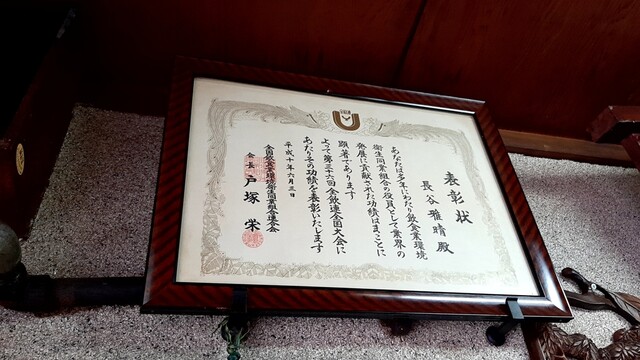 表彰状
長谷雅晴殿
あなたは多年にわたり飲食業環境
衛生同業組合の役員として業界の
発展に貢献された功績はまことに
顕著であります
よって第三十六回全飲連全国大会に
あたりその功績を表彰いたします
平成十年六月三日
全国飲食業環境衛生同業組合連合会
会長 戸塚 栄